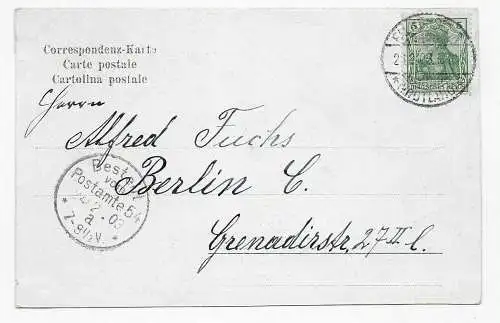 Correspondenz-Karte
Carte postale
Cartolina postale
Herrn
Alfred Fuchs
Berlin C.
Grenadirstr. 27 II l.
Bestellt
vom
Postamte 54
2. 03
a
7-8½V